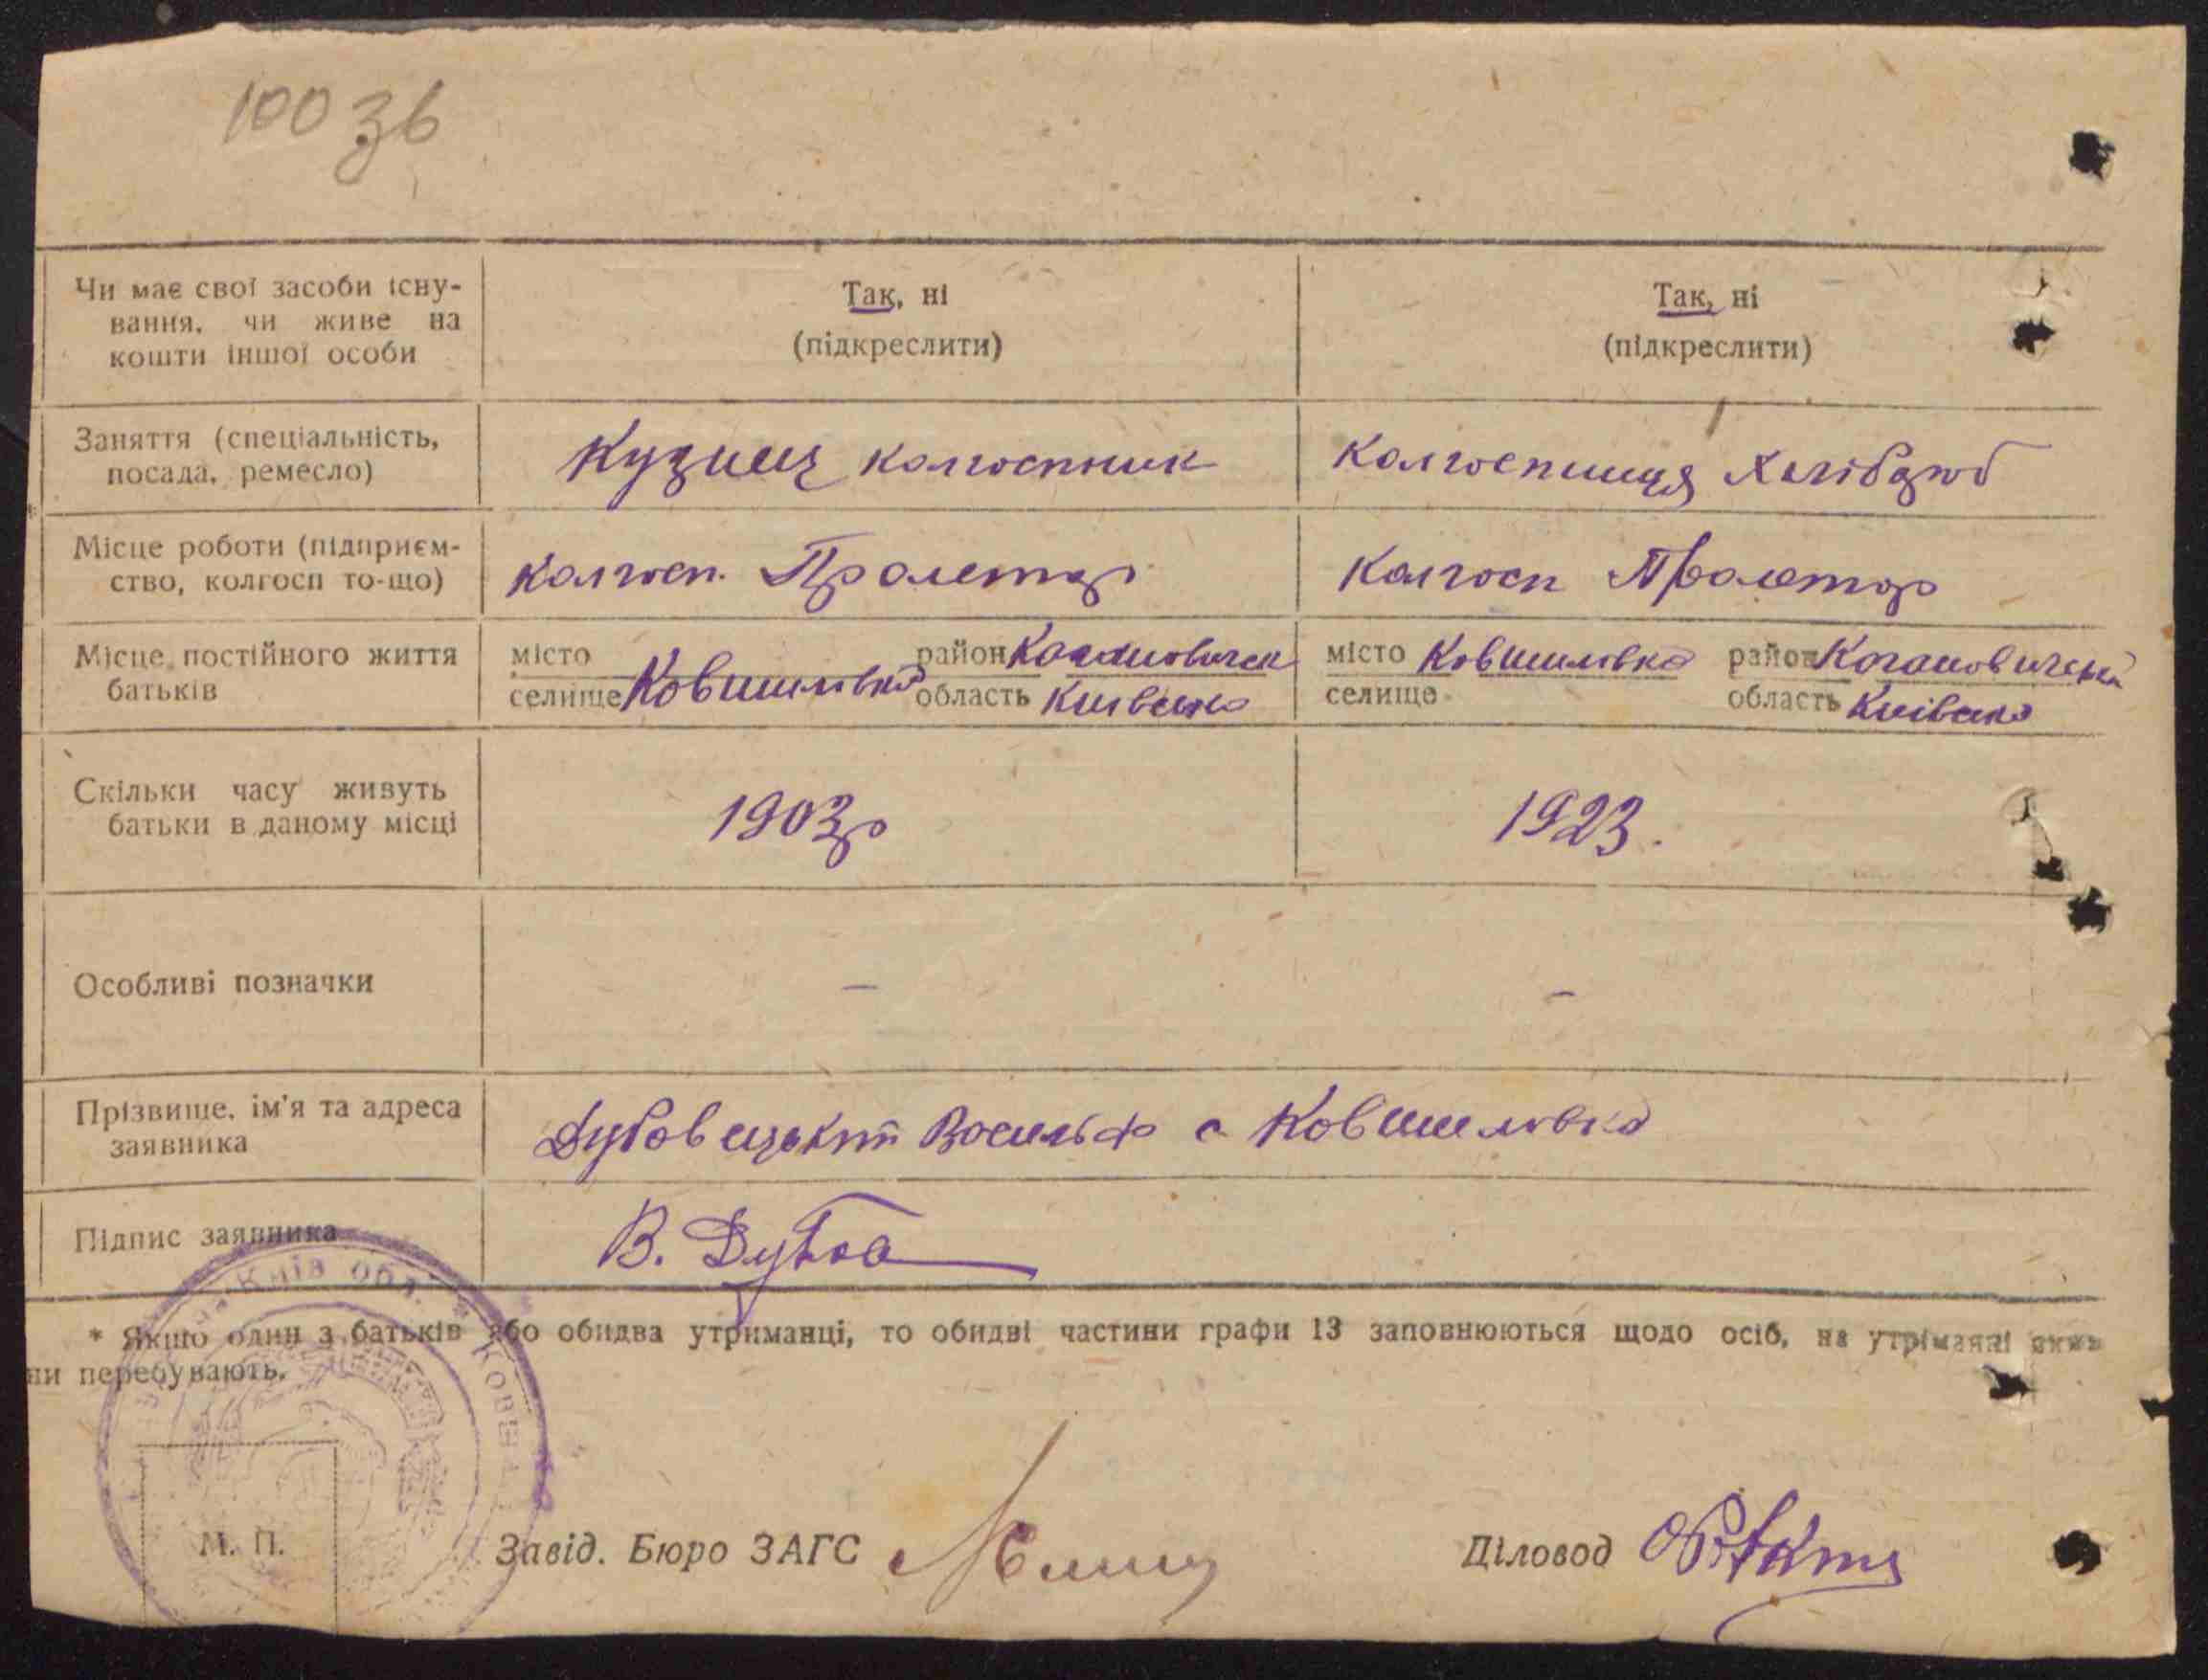 100 зв
Чи має свої засоби існу-
вання, чи живе на
кошти іншої особи
Так, ні
(підкреслити)
Так, ні
(підкреслити)
Заняття (спеціальність,
посада, ремесло)
Кузнец колгоспник
Колгоспниця Хлібороб
Місце роботи (підприєм-
ство, колгосп то-що)
Колгосп. Пролетар
Колгосп Пролетар
Місце постійного життя
батьків
місто
селище Ковшилівка
район
область Київська
місто Ковшилівка
селище
район Кагановичський
область Київська
Скільки часу живуть
батьки в даному місці
1903р
1923.
Особливі позначки
–
–
Прізвище, ім'я та адреса
заявника
Дубовецький Василь Ф с Ковшилівка
Підпис заявника
В. Дубов
* Якщо один з батьків або обидва утриманці, то обидві частини графи 13 заповнюються щодо осіб, на утріманні яких
ни перебувають.
Київ обл. * Ковш
М. П.
Завід. Бюро ЗАГС
Діловод